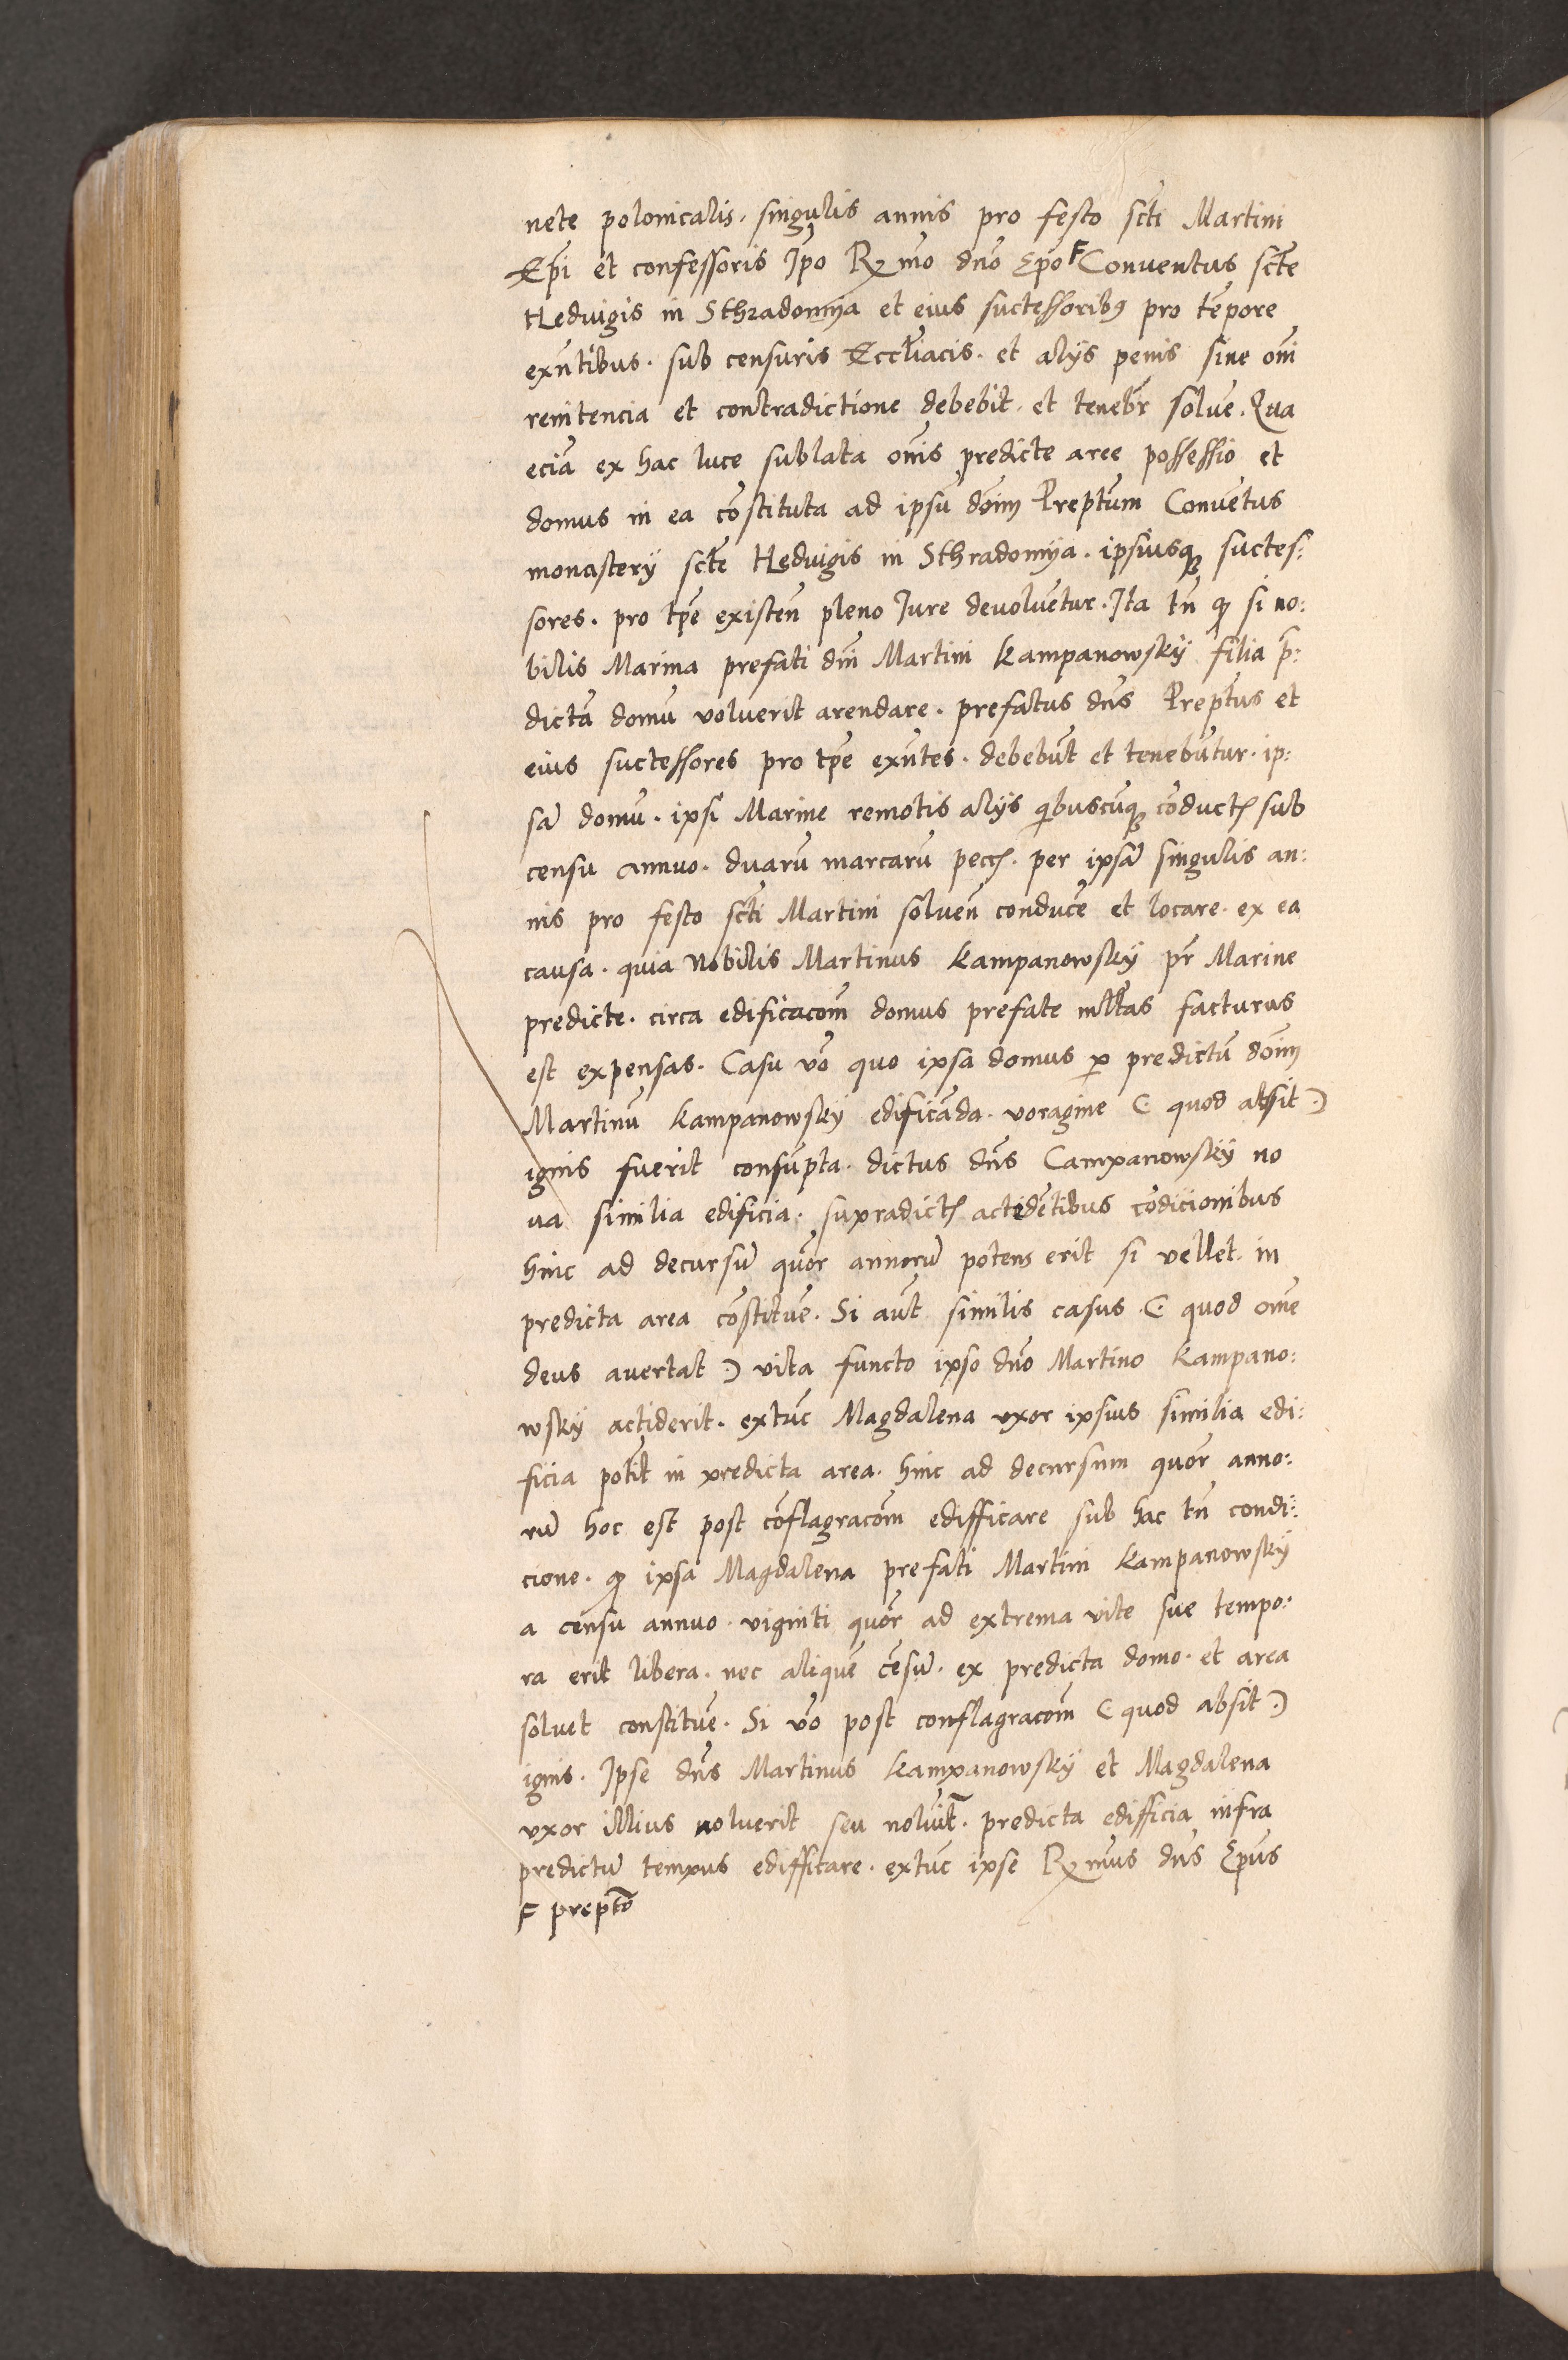 nete polonicalis. singulis annis pro festo scti Martini
Epi et confessoris Ipo Rxmo dno Epo F Conventus scte
Hedvigis in Sthradomya et eius suctessoribus pro tempore
exntibus. sub censuris Eccliacis. et alijs penis sine omi
renitencia et contradictione debebit. et tenebr solve. Qua
eciã ex hac luce sublata omis predicte aree possessio et
domus in ea cõstituta ad ipsũ dõim Preptum Convẽtus
monasterij scte Hedvigis in Sthradomya. ipsiusqꝫ suctes:
sores. pro tpe existen pleno Jure devoluẽtur. Ita tn ꝙ si no:
bilis Marina prefati dni Martini Kampanowskÿ filia p̄:
dictã domũ voluerit arendare. prefatus dns Preptus et
eius suctessores pro tpe exntes. debebũt et tenebũtur. ip:
sã domũ. ipsi Marine remotis alijs qibuscũqꝫ cõductꝭ sub
censu annuo. duarũ marcarũ pecꝭ. per ipsã singulis an:
nis pro festo scti Martini solven conducẽ et locare. ex ea
causa. quia Nobilis Martinus Kampanowskÿ pr Marine
predicte. circa edificacom domus prefate mltas facturus
est expensas. Casu vo quo ipsa domus ꝑ predictũ dõim
Martinũ Kampanowskÿ edificãda. voragine (. quod absit .)
ignis fuerit consũpta. dictus dns Campanowskÿ no
va similia edificia. supradictꝭ actidẽtibus cõdicionibus
hinc ad decursũ quor annorũ potens erit si vellet. in
predicta area cõstitue. Si aut similis casus. (. quod ome
deus avertat .) vita functo ipso dno Martino Kampano:
wskÿ actiderit. extũc Magdalena uxor ipsius similia edi:
ficia potit in predicta area. hinc ad decursum quor anno:
rũ hoc est post cõflagracom edifficare sub hac tn condi:
cione. ꝙ ipsa Magdalena prefati Martini Kampanowskÿ
a censu annuo. viginti quor ad extrema vite sue tempo:
ra erit libera. nec aliquẽ cẽsũ. ex predicta domo. et area
solvet constitue. Si vo post conflagracom (. quod absit .)
ignis. Ipse dns Martinus Kampanowskÿ et Magdalena
uxor illius noluerit seu noluit. predicta edifficia infra
predictũ tempus edifficare. extũc ipse Rxmus dns Epus
F prepto